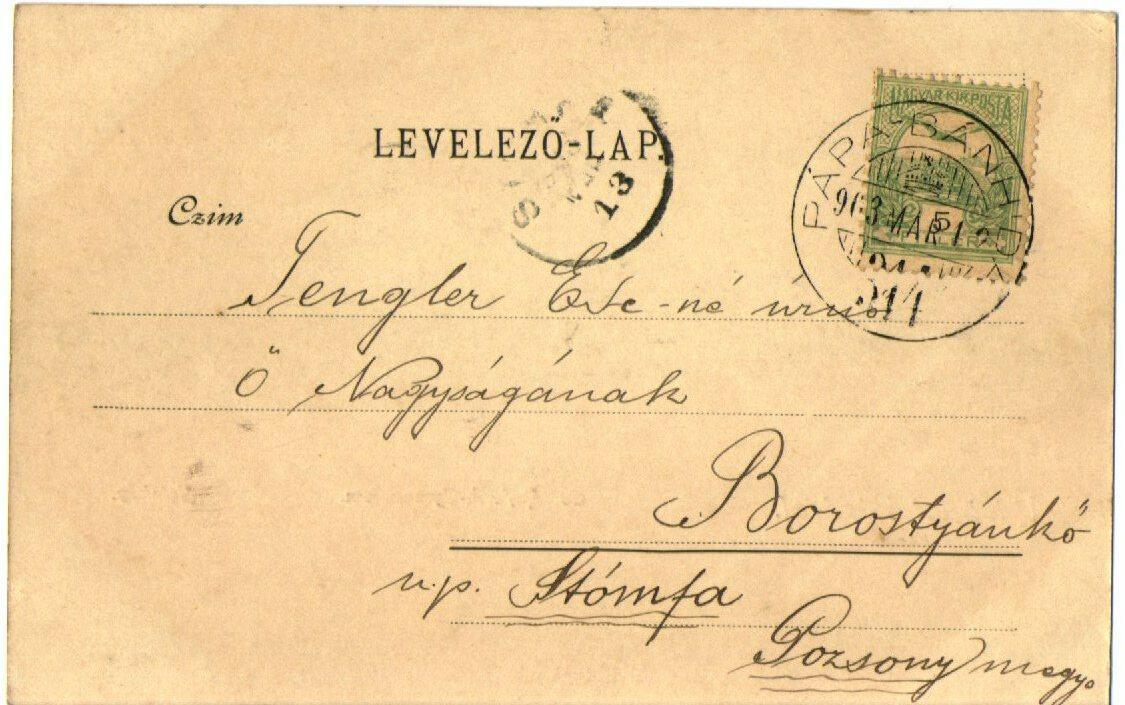 LEVELEZŐ-LAP.
MAGYAR KIR. POSTA
PÁPA-BÁNHIDA
903 MAR 12
5
211
13
Czim
Tengler Ede-né úrnő
Ő Nagyságának
Borostyánkő
u.p. Stómfa
Pozsony megye